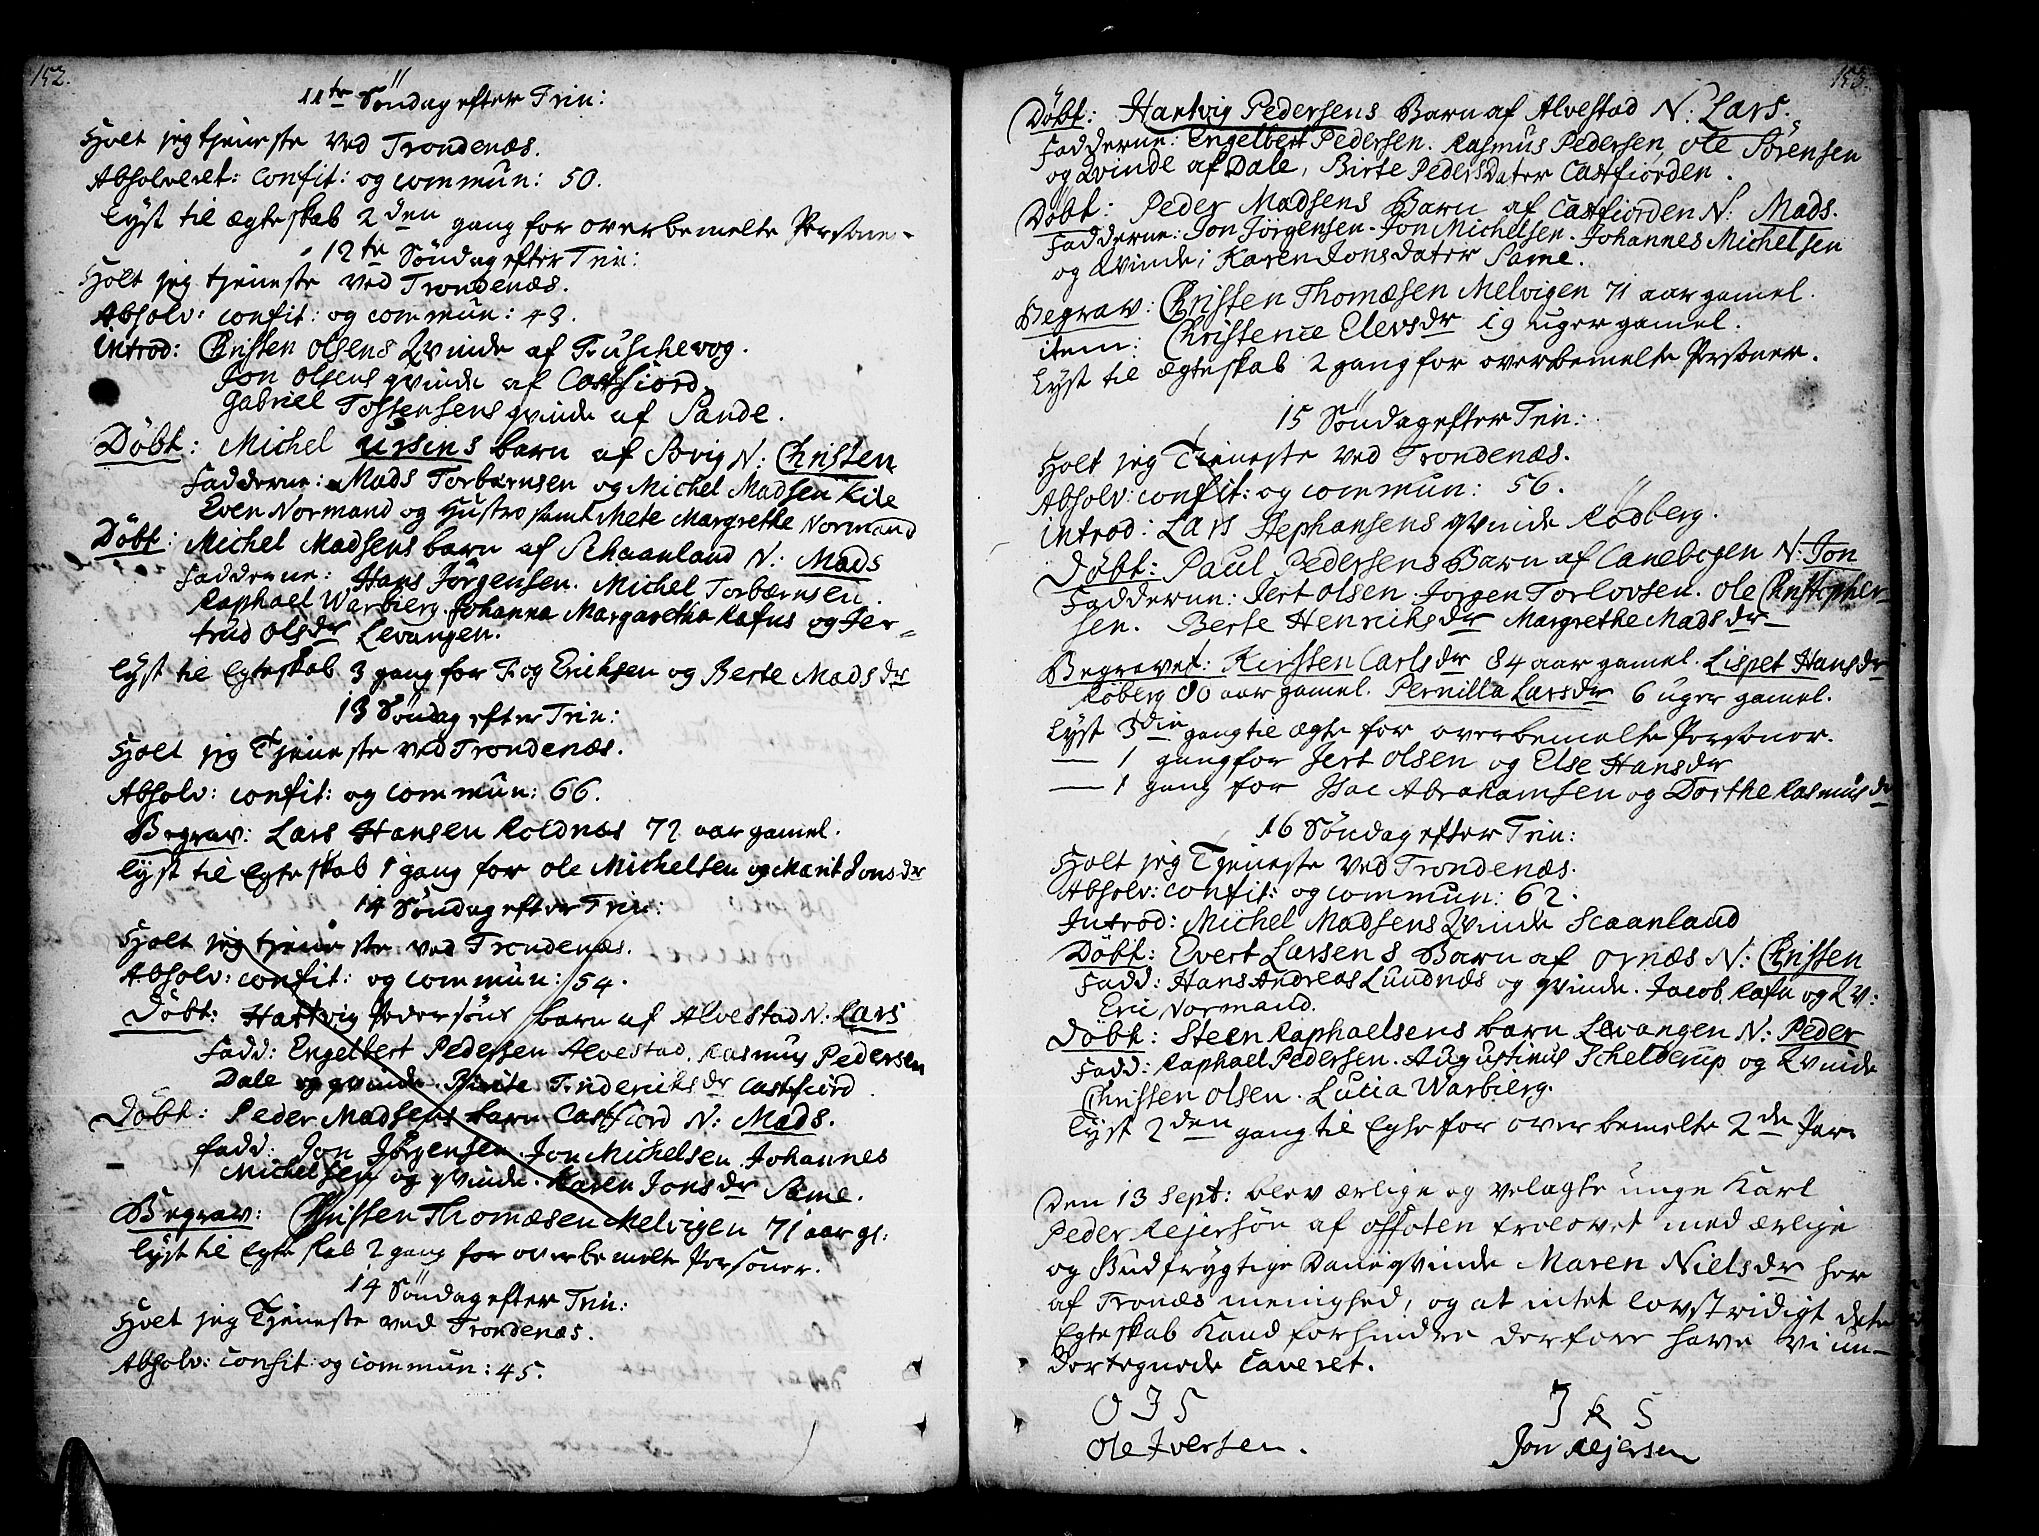 152.
11te Söndag efter Trin:
Holt jeg tjeneste ved Trondenæs.
Absolveret: confit: og commun: 50.
lyst til ægteskab 2den gang for overbemelte Persone-
12te Söndag efter Trin:
Holt jeg tjeneste ved Trondenæs.
Absolv: confit: og commun: 43.
Introd: Christen Olsens Qvinde af Fuschevog.
Jon Olsens qvinde af Castfiord.
Gabriel Tostensens qvinde af Sande.
Döbt: Michel Ursens barn af Sörvig N: Christen
Fadderne: Mads Torbærnsen og Michel Madsen Kile
Even Normand og Hustro samt Mete Margrethe Normand
Döbt: Michel Madsens barn af Schaanland N: Mads
Fadderne: Hans Jörgensen. Michel Torbærnsen.
Raphael Warbierg. Johanna Margaretha Rafns og Jer-
trud Olsdr Levangen.
lyst til Egteskab 3 gang for Eriksen og Berte Madsdr
13 Söndag efter Trin:
Holt jeg Tjeneste ved Trondenæs.
Absolv: confit: og commun: 66.
Begrav: Lars Hansen Roldnæs 72 aar gamel.
lyst til Egteskab 1 gang for Ole Michelsen og Marit Jonsdr
14 Söndag efter Trin:
Holt jeg tjeneste ved Trondenæs.
Absolv: confit: og commun: 54.
Döbt: Hartvig Pedersöns barn af Alvestad N: Lars
Fadd: Engelbert Pedersen Alvestad. Rasmus Pedersen
Dale og qvinde. Birite Fridericksdr Castfiord.
Döbt: Peder Madsens barn Castfiord N: Mads.
fadd: Jon Jörgensen. Jon Michelsen. Johannes
Michelsen og qvinde. Karen Jonsdr Same.
Begrav: Christen Thomæsen Melvigen 71 aar gl:
lyst til Egteskab 2 gang for overbemelte Personer.
14 Söndag efter Trin:
Holt jeg Tjeneste ved Trondenæs.
Absolv: confit: og commun: 45.
153.
Döbt: Hartvig Pedersens Barn af Alvestad N: Lars.
Fadderne: Engelbert Pedersen. Rasmus Pedersen, Ole Sörensen
og Qvinde af Dale, Birte Pedersdater Castfiorden.
Döbt: Peder Madsens Barn af Castfiorden N: Mads.
Fadderne: Jon Jörgensen. Jon Michelsen. Johannes Michelsen
og Qvinde; Karen Jonsdater Same.
Begrav: Christen Thomæsen Melvigen 71 aar gamel.
item: Christence Elevsdr 19 uger gamel.
Lyst til Ægteskab 2 gang for overbemelte Personer.
15 Söndag efter Trin:
Holt jeg Tieneste ved Trondenæs.
Absolv: confit: og commun: 56.
Introd: Lars Stephansens qvinde Rödberg.
Döbt: Paul Pedersens Barn af Canebogen N: Jon
Fadderne: Jert Olsen. Jörgen Torlovsen. Ole Christopher-
sen. Berte Henricksdr Margrethe Madsdr
Begravet: Kirsten Carlsdr 84 aar gamel. Lispet Hansdr
Röberg 80 aar gamel. Pernilla Larsdr 6 uger gamel.
Lyst 3die gang til Egte for overbemelte Personer.
— 1 gang for Jert Olsen og Else Hansdr
— 1 gang for Isac Abrahamsen og Dorthe Rasmusdr
16 Söndag efter Trin:
Holt jeg Tjeneste ved Trondenæs.
Absolv: confit: og commun: 62.
Introd: Michel Madsens Qvinde Scaanland
Döbt: Evert Larsens Barn af Ornæs N: Christen
Fadd: Hans Andreas Lundnæs og qvinde. Jacob Rafn og Qv:
Eric Normand.
Döbt: Steen Raphaelsens barn Levangen N: Peder
Fadd: Raphael Pedersen. Augustinus Schelderup og Qvinde
Christen Olsen. Lucia Warbierg.
Lyst 2den gang til Egte for overbemelte 2de Par.
Den 13 Sept: blev ærlige og velagte unge Karl
Peder Rejersön af Ofsoten trolovet med ærlige
og Gudfrygtige Daneqvinde Maren Nielsdr her
af Tronæs menighed, og at intet lovstridigt dete
Egteskab Kand forhindre derfore have vi un-
dertegnede Caveret.
O I S
J R S
Ole Iversen.
Jon Rejersen